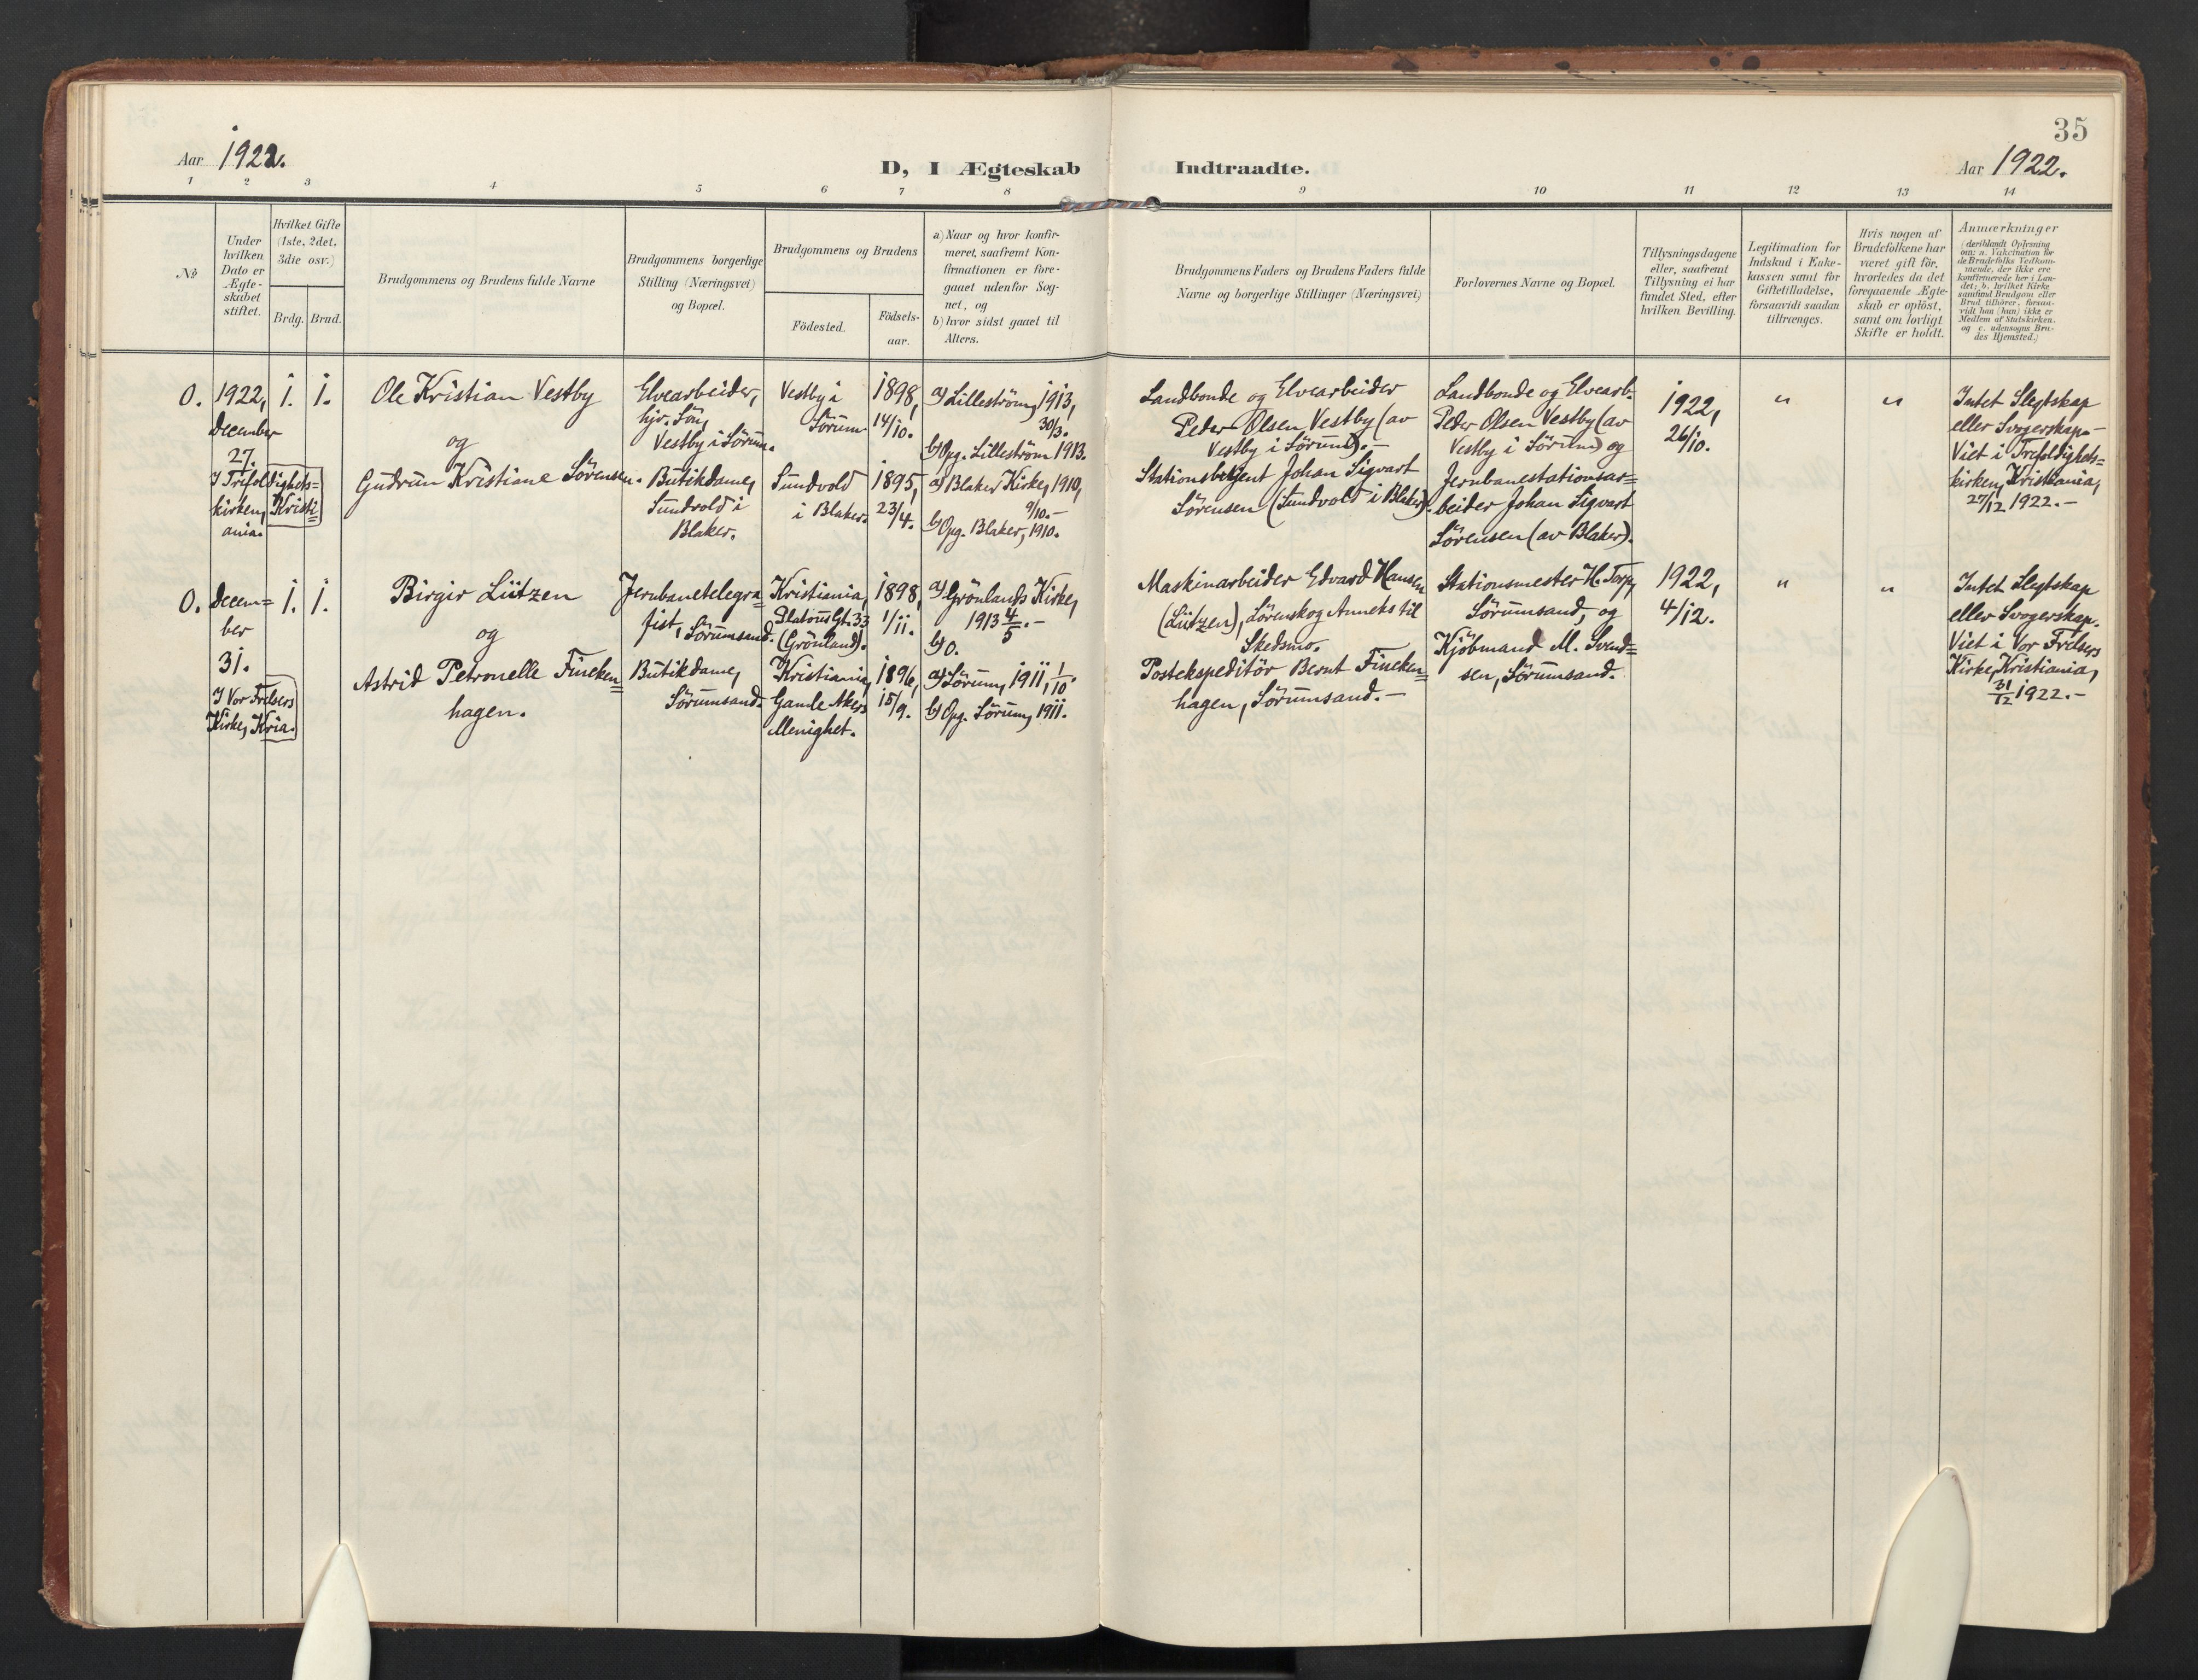 35
Aar 1922.
D, I Ægteskab Indtraadte.
Aar 1922.
1 2 3 4 5 6 7 8 9 10 11 12 13 14
No
Under
hvilken
Dato er
Ægte-
skabet
stiftet.
Hvilket Gifte
(1ste, 2det,
3die osv.)
Brdg. Brud.
Brudgommens og Brudens fulde Navne
Brudgommens borgerlige
Stilling (Næringsvei)
og Bopæl.
Brudgommens og Brudens
Födested.
Födsels-
aar.
a) Naar og hvor konfir-
meret, saafremt Kon-
firmationen er fore-
gaaet udenfor Sog-
net, og
b) hvor sidst gaaet til
Alters.
Brudgommens Faders og Brudens Faders fulde
Navne og borgerlige Stillinger (Næringsvei)
Forlovernes Navne og Bopæl.
Tillysningsdagene
eller, saafremt
Tillysning ei har
fundet Sted, efter
hvilken Bevilling.
Legitimation for
Indskud i Enke-
kassen samt for
Giftetilladelse,
forsaavidt saadan
tiltrænges.
Hvis nogen af
Brudefolkene har
været gift för,
hvorledes da det
foregaaende Ægte-
skab er oplöst,
samt om lovligt
Skifte er holdt.
Anmærkninger
(deriblandt Oplysning
om: a. Vakcination for
de Brudefolks Vedkom-
mende, der ikke ere
konfirmerede her i Lan-
det; b. hvilket Kirke-
samfund Brudgom eller
Brud tilhörer, forsaa-
vidt han (hun) ikke er
Medlem af Statskirken.
og c. udensogns Bru-
des Hjemsted.)
0.
1922,
December
27.
I Trefoldigheds=
kirken, Kristi=
ania.
1. 1.
Ole Kristian Vestby
og
Gudrun Kristiane Sörensen.
Elvearbeider,
hjv. Sön,
Vestby i Sörum.
Butikdame,
Sundvold i
Blaker.
Vestby i
Sörum
Sundvold
i Blaker.
1898,
14/10.
1895,
23/4.
a) Lilleström, 1913,
30/3.
b) Opg. Lilleström 1913.
a) Blaker Kirke, 1910,
9/10.-
b) Opg. Blaker, 1910.
Landbonde og Elvearbeider
Peder Olsen Vestby (av
Vestby i Sörum).-
Stationsbetjent Johan Sigvart
Sörensen (Sundvold i Blaker).
Landbonde og Elvearb.
Peder Olsen Vestby (av
Vestby i Sörum) og
Jernbanestationsar=
beider Johan Sigvart
Sörensen (av Blaker).
1922,
26/10.
" "
Intet Slegtskap
eller Svogerskap.-
Viet i Trefoldigheds=
kirken, Kristiania,
27/12 1922.-
0.
Decem=
ber
31.
I Vor Frelsers
Kirke, Kria.
1. 1.
Birgir Lützen
og
Astrid Petronelle Fincken=
hagen.
Jernbanetelegra=
fist, Sörumsand.
Butikdame,
Sörumsand.
Kristiania,
Platous Gt. 33
(Grönland).
Kristiania,
Gamle Akers
Menighet.
1898,
1/11.
1896,
15/9.
a) Grönlands Kirke,
1913 4/5.-
b) 0.
a) Sörum, 1911, 1/10.
b) Opg. Sörum, 1911.
Maskinarbeider Edvard Hansen
(Lützen), Lörenskog Anneks til
Skedsmo.
Postekspeditör Bernt Fincken=
hagen, Sörumsand.-
Stationsmester H. Torp,
Sörumsand, og
Kjöbmand M. Svend=
sen, Sörumsand.
1922,
4/12.
" "
Intet Slegtskap
eller Svogerskap.
Viet i Vor Frelsers
Kirke, Kristiania,
31/12 1922.-